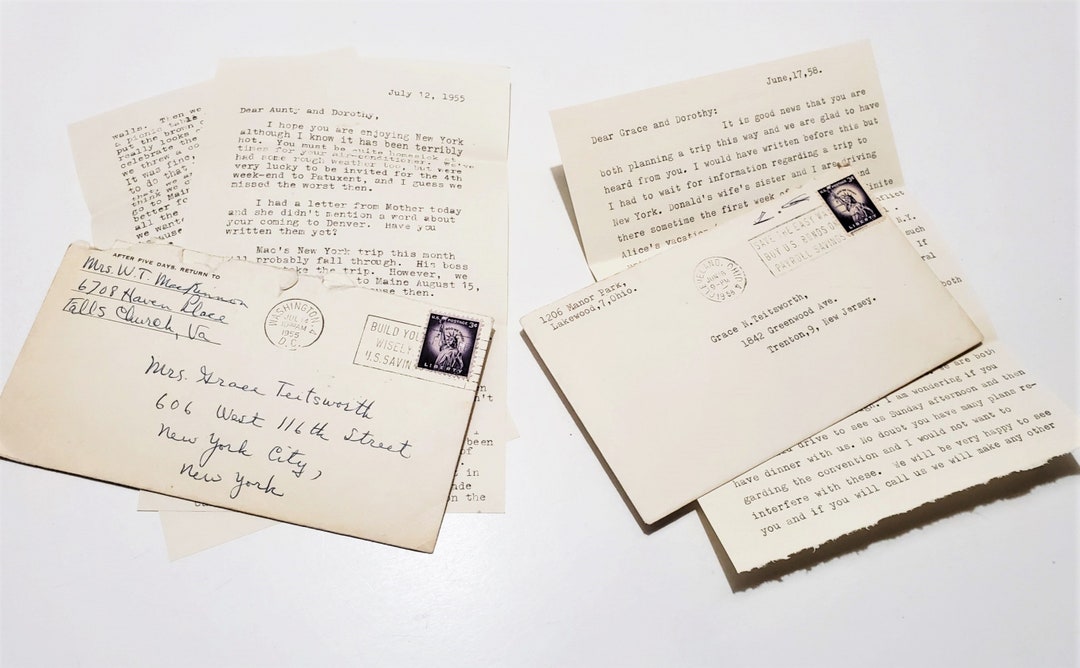 walls. Then we
a picnic table
put the brown
really looks
celebrate the
we threw a co
It was fine,
to do that
think we
go to Main
better fo
all the
we want
ause
July 12, 1955
Dear Aunty and Dorothy,
I hope you are enjoying New York
although I know it has been terribly
hot. You must be quite homesick
times for your air-conditioner. We've
had some rough weather too, but were
very lucky to be invited for the 4th
week-end to Patuxent, and I guess we
missed the worst then.
I had a letter from Mother today
and she didn't mention a word about
your coming to Denver. Have you
written them yet?
Mac's New York trip this month
will probably fall through. His boss
take the trip. However, we
to Maine August 15,
use then.
n't
been
of
t in
nde
n the
AFTER FIVE DAYS, RETURN TO
Mrs. W.T. MacKinnon
6708 Haven Place
Falls Church, Va
WASHINGTON, 4
JUL 14
1955
D.C.
BUILD YOU
WISELY
U.S. SAVIN
U.S. POSTAGE 3¢
LIBERTY
Mrs. Grace Teitsworth
606 West 116th Street
New York City,
New York
June,17,58.
Dear Grace and Dorothy:
It is good news that you are
both planning a trip this way and we are glad to have
heard from you. I would have written before this but
I had to wait for information regarding a trip to
New York. Donald's wife's sister and I are driving
there sometime the first week of
Alice's vacation
nd
inite
flict
N.Y.
such
If
ral
both
1206 Manor Park,
Lakewood,7,Ohio.
CLEVELAND, OHIO
JUN 18
1958
SAFE
BUY U.S. BONDS
PAYROLL SAVINGS
3¢
LIBERTY
Grace N,Teitsworth,
1842 Greenwood Ave.
Trenton,9, New Jersey.
e are both
I am wondering if you
drive to see us Sunday afternoon and then
have dinner with us. No doubt you have many plans re-
garding the convention and I would not want to
interfere with these. We will be very happy to see
you and if you will call us we will make any other